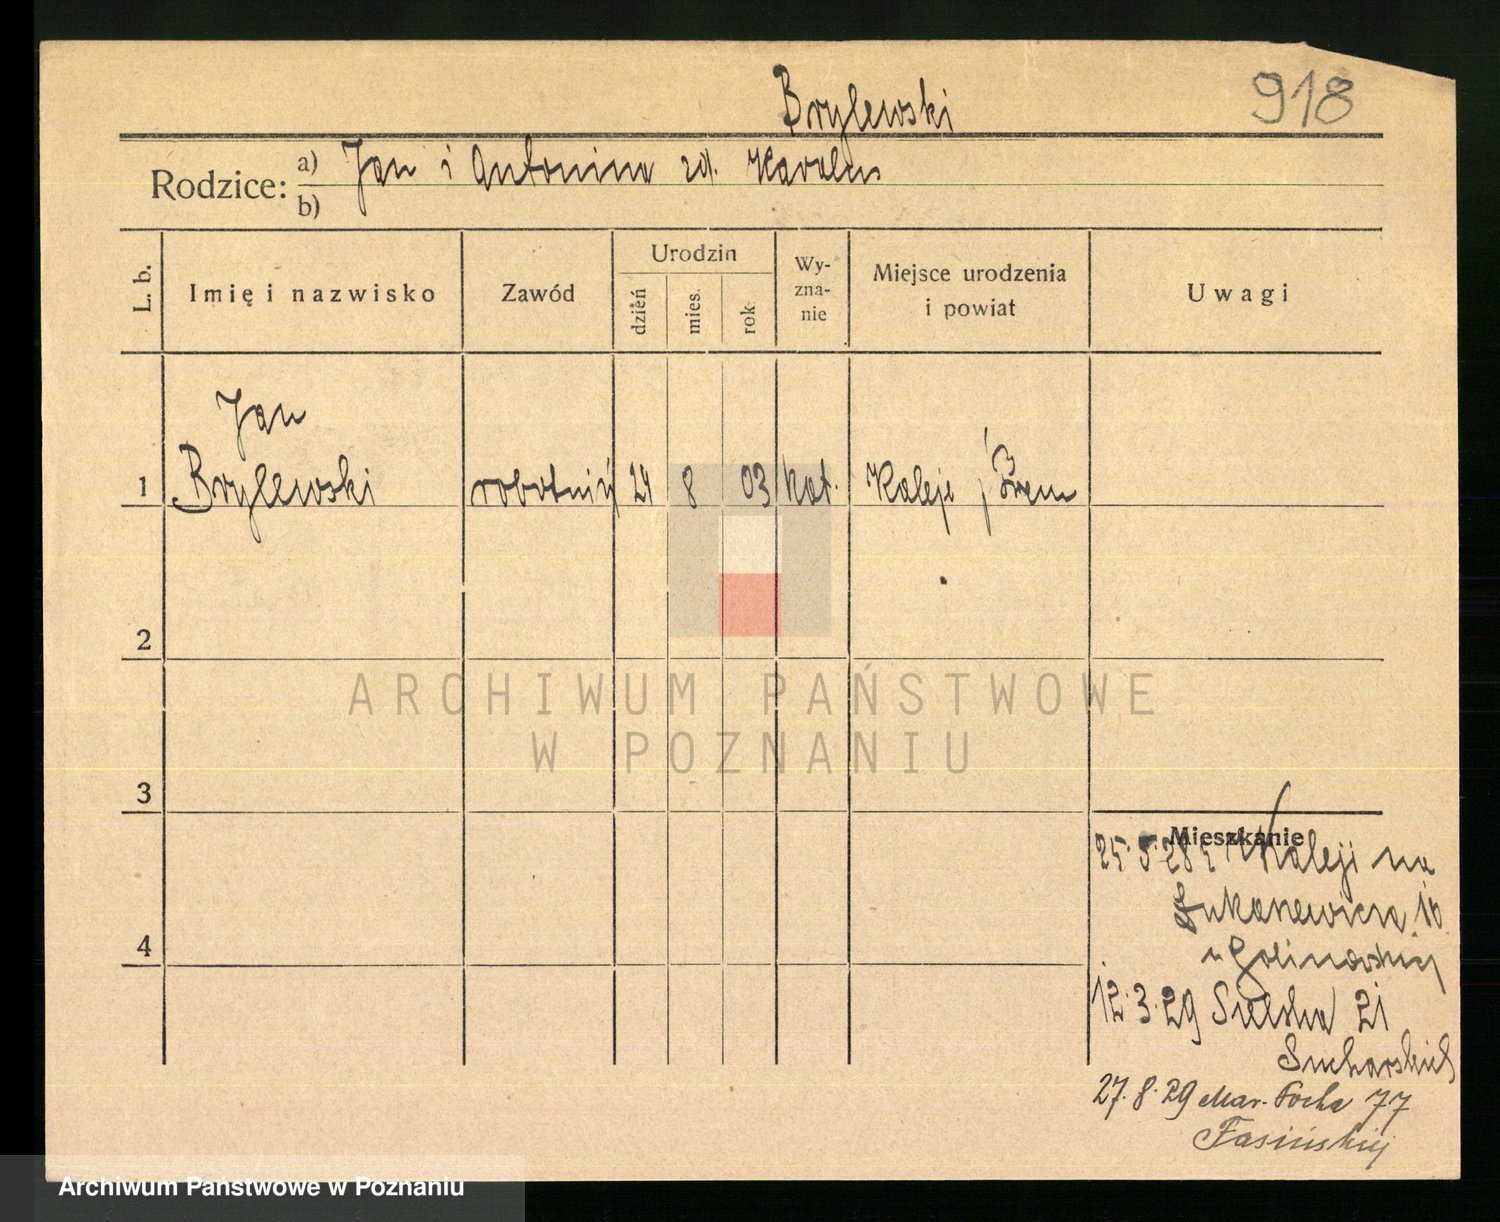 Brylewski
918
Rodzice: a) Jan i Antonina zd.
b)
L. b.
Imię i nazwisko
Zawód
Urodzin
dzień
mies.
rok
Wy-
zna-
nie
Miejsce urodzenia
i powiat
Uwagi
Jan
1 Brylewski robotnik 24 8 03 kat. Kaleje, Śrem
2
3
4
Mieszkanie
25.5.28 z Kaleji na
Łukaszewicza 16
u
12.3.29 Sielska 21
Sucharskich
27.8.29 Mar. Focha 77
Fasińskiej
ARCHIWUM PAŃSTWOWE
W POZNANIU
Archiwum Państwowe w Poznaniu